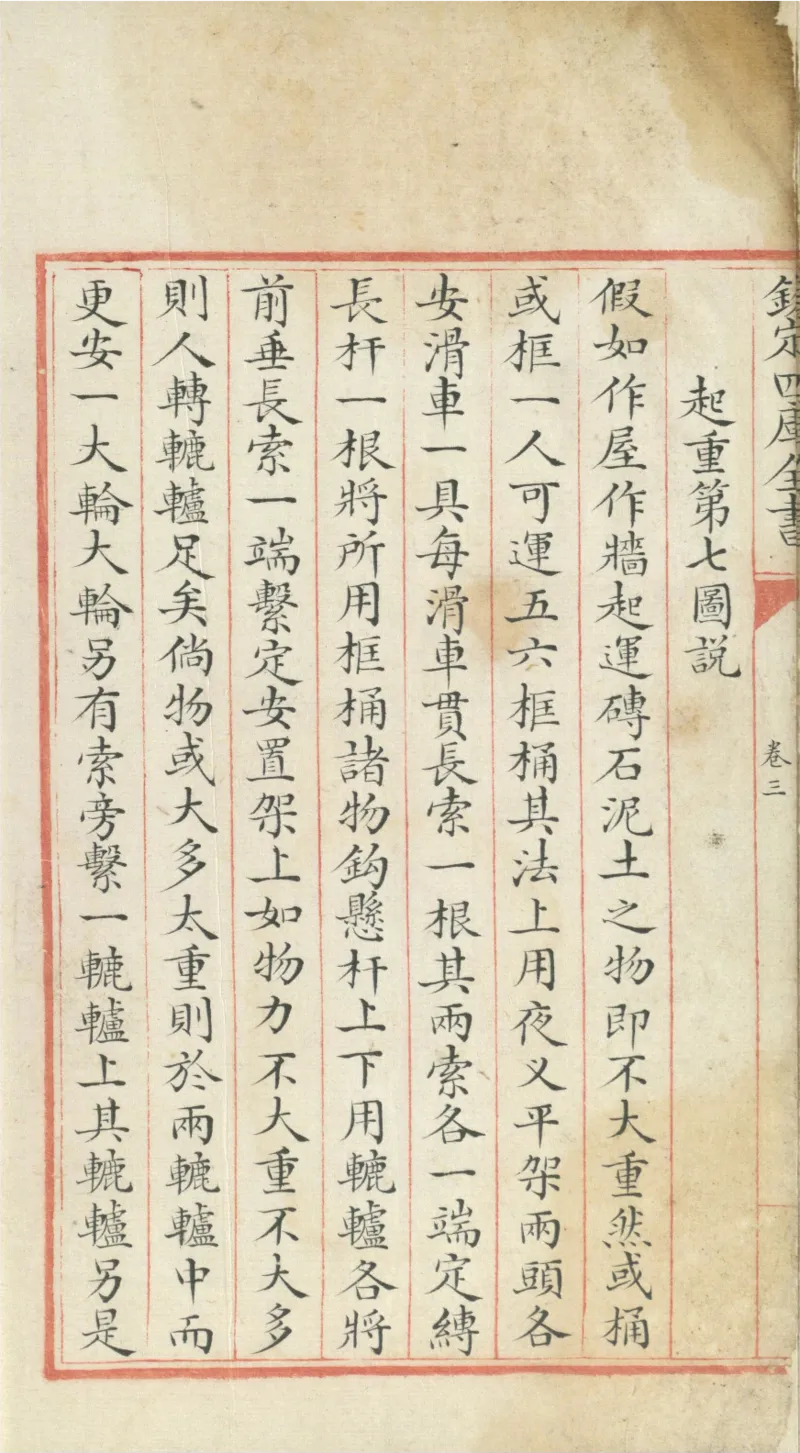 欽定四庫全書
卷三
起重第七圖說
假如作屋作牆起運磚石泥土之物即不大重然或桶
或框一人可運五六框桶其法上用夜义平架兩頭各
安滑車一具每滑車貫長索一根其兩索各一端定縛
長杆一根將所用框桶諸物鈎懸杆上下用轆轤各將
前垂長索一端繫定安置架上如物力不大重不大多
則人轉轆轤足矣倘物或大多太重則於兩轆轤中而
更安一大輪大輪另有索旁繫一轆轤上其轆轤另是